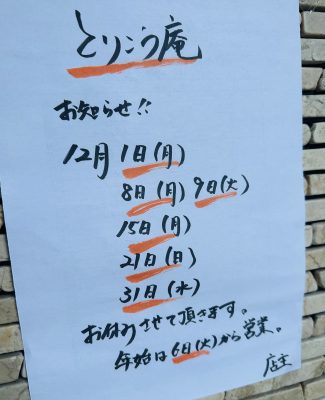 とりごう庵
お知らせ!!
12月 1日(月)
8日(月) 9日(火)
15日(月)
21日(日)
31日(水)
お休みさせて頂きます。
年始は6日(火)から営業。
店主